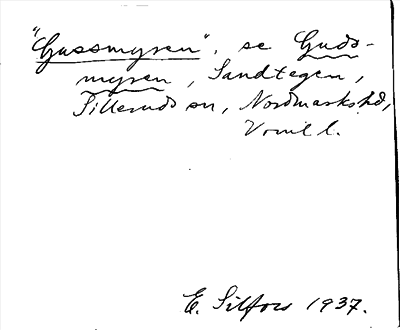 "Gussmyren", se Guds-
myren, Sandtegen,
Sillerud sn, Nordmarks hd,
Vrml l.
E. Silfors 1937.